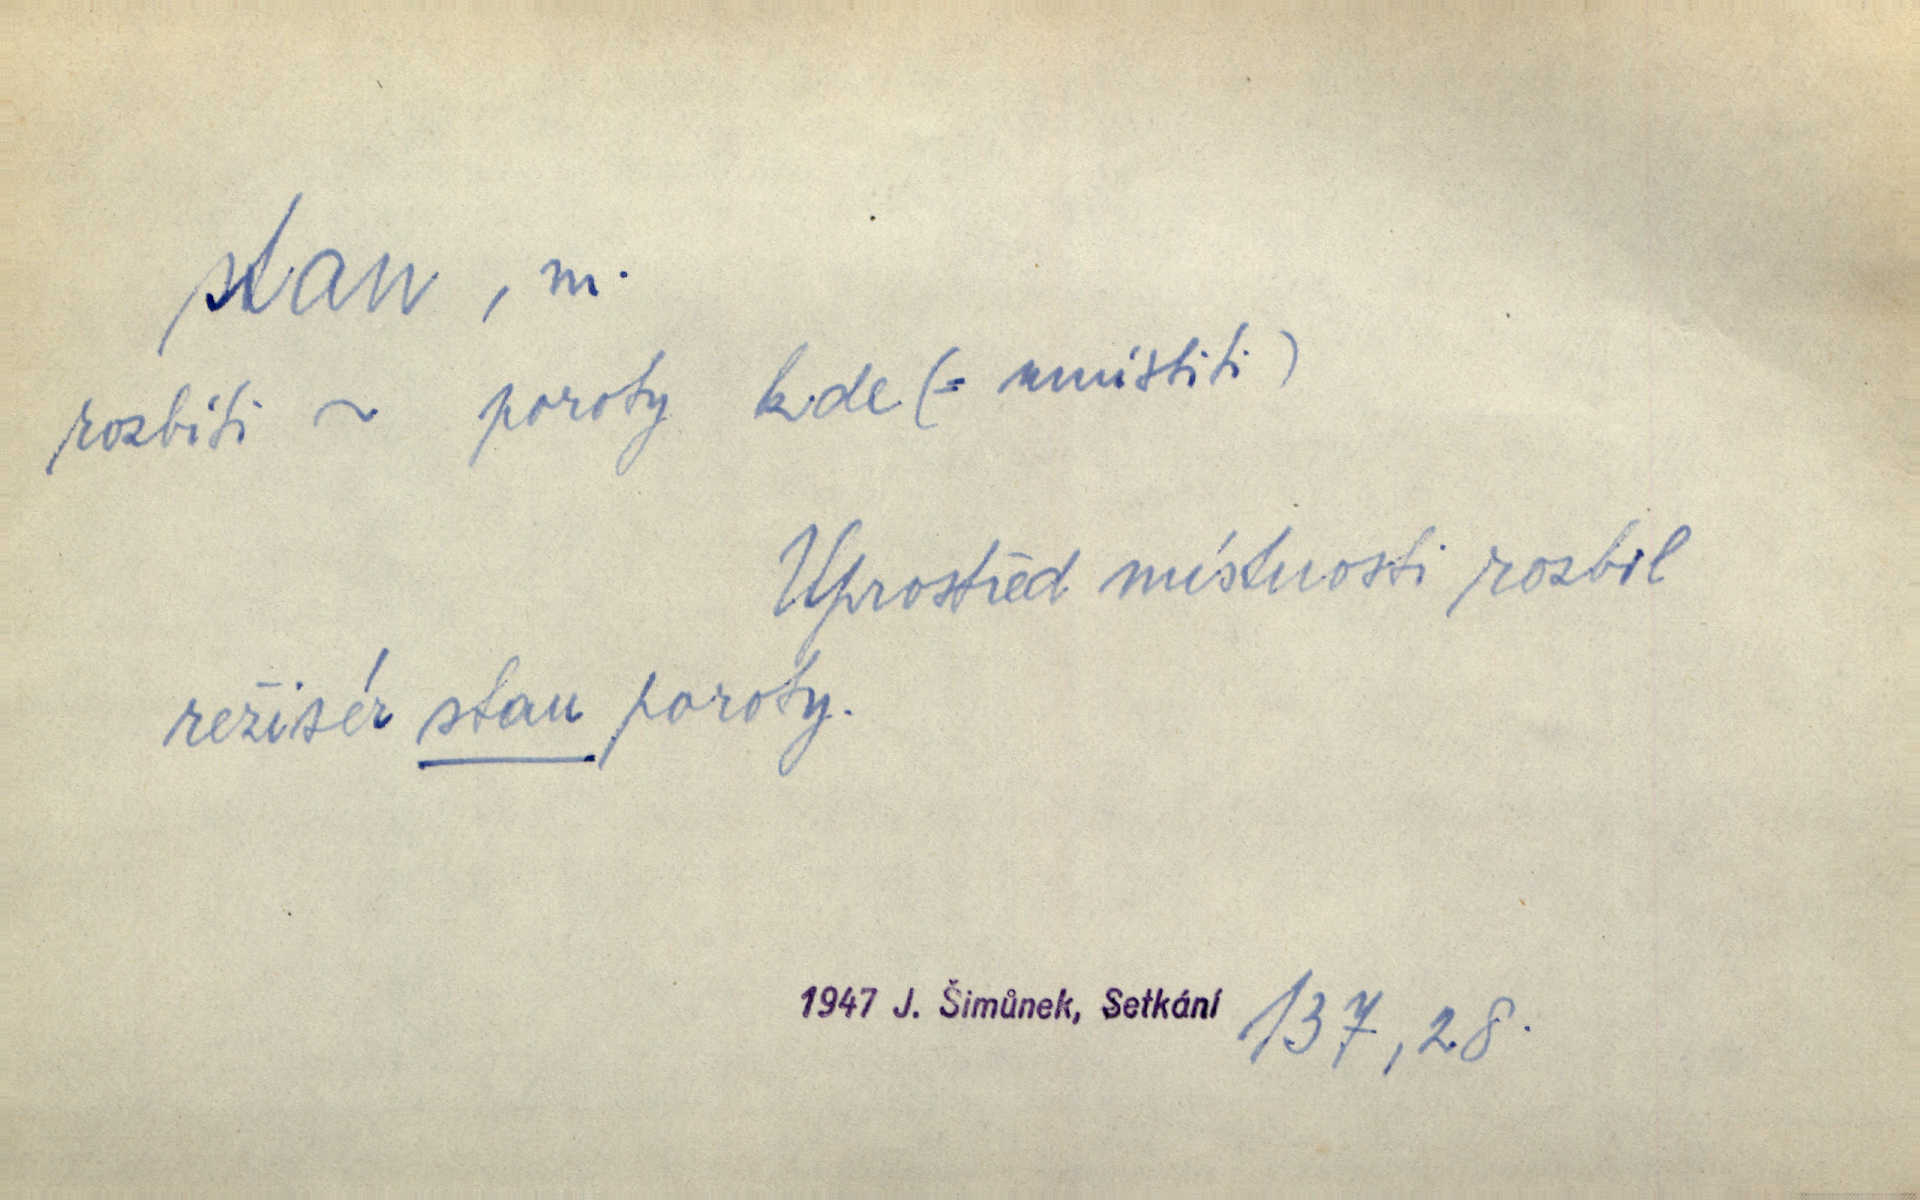 stan, m.
rozbíti ~ poroty kde (= umístiti)
Uprostřed místnosti rozbil
režisér stan poroty.
1947 J. Šimůnek, Setkání 137, 28.